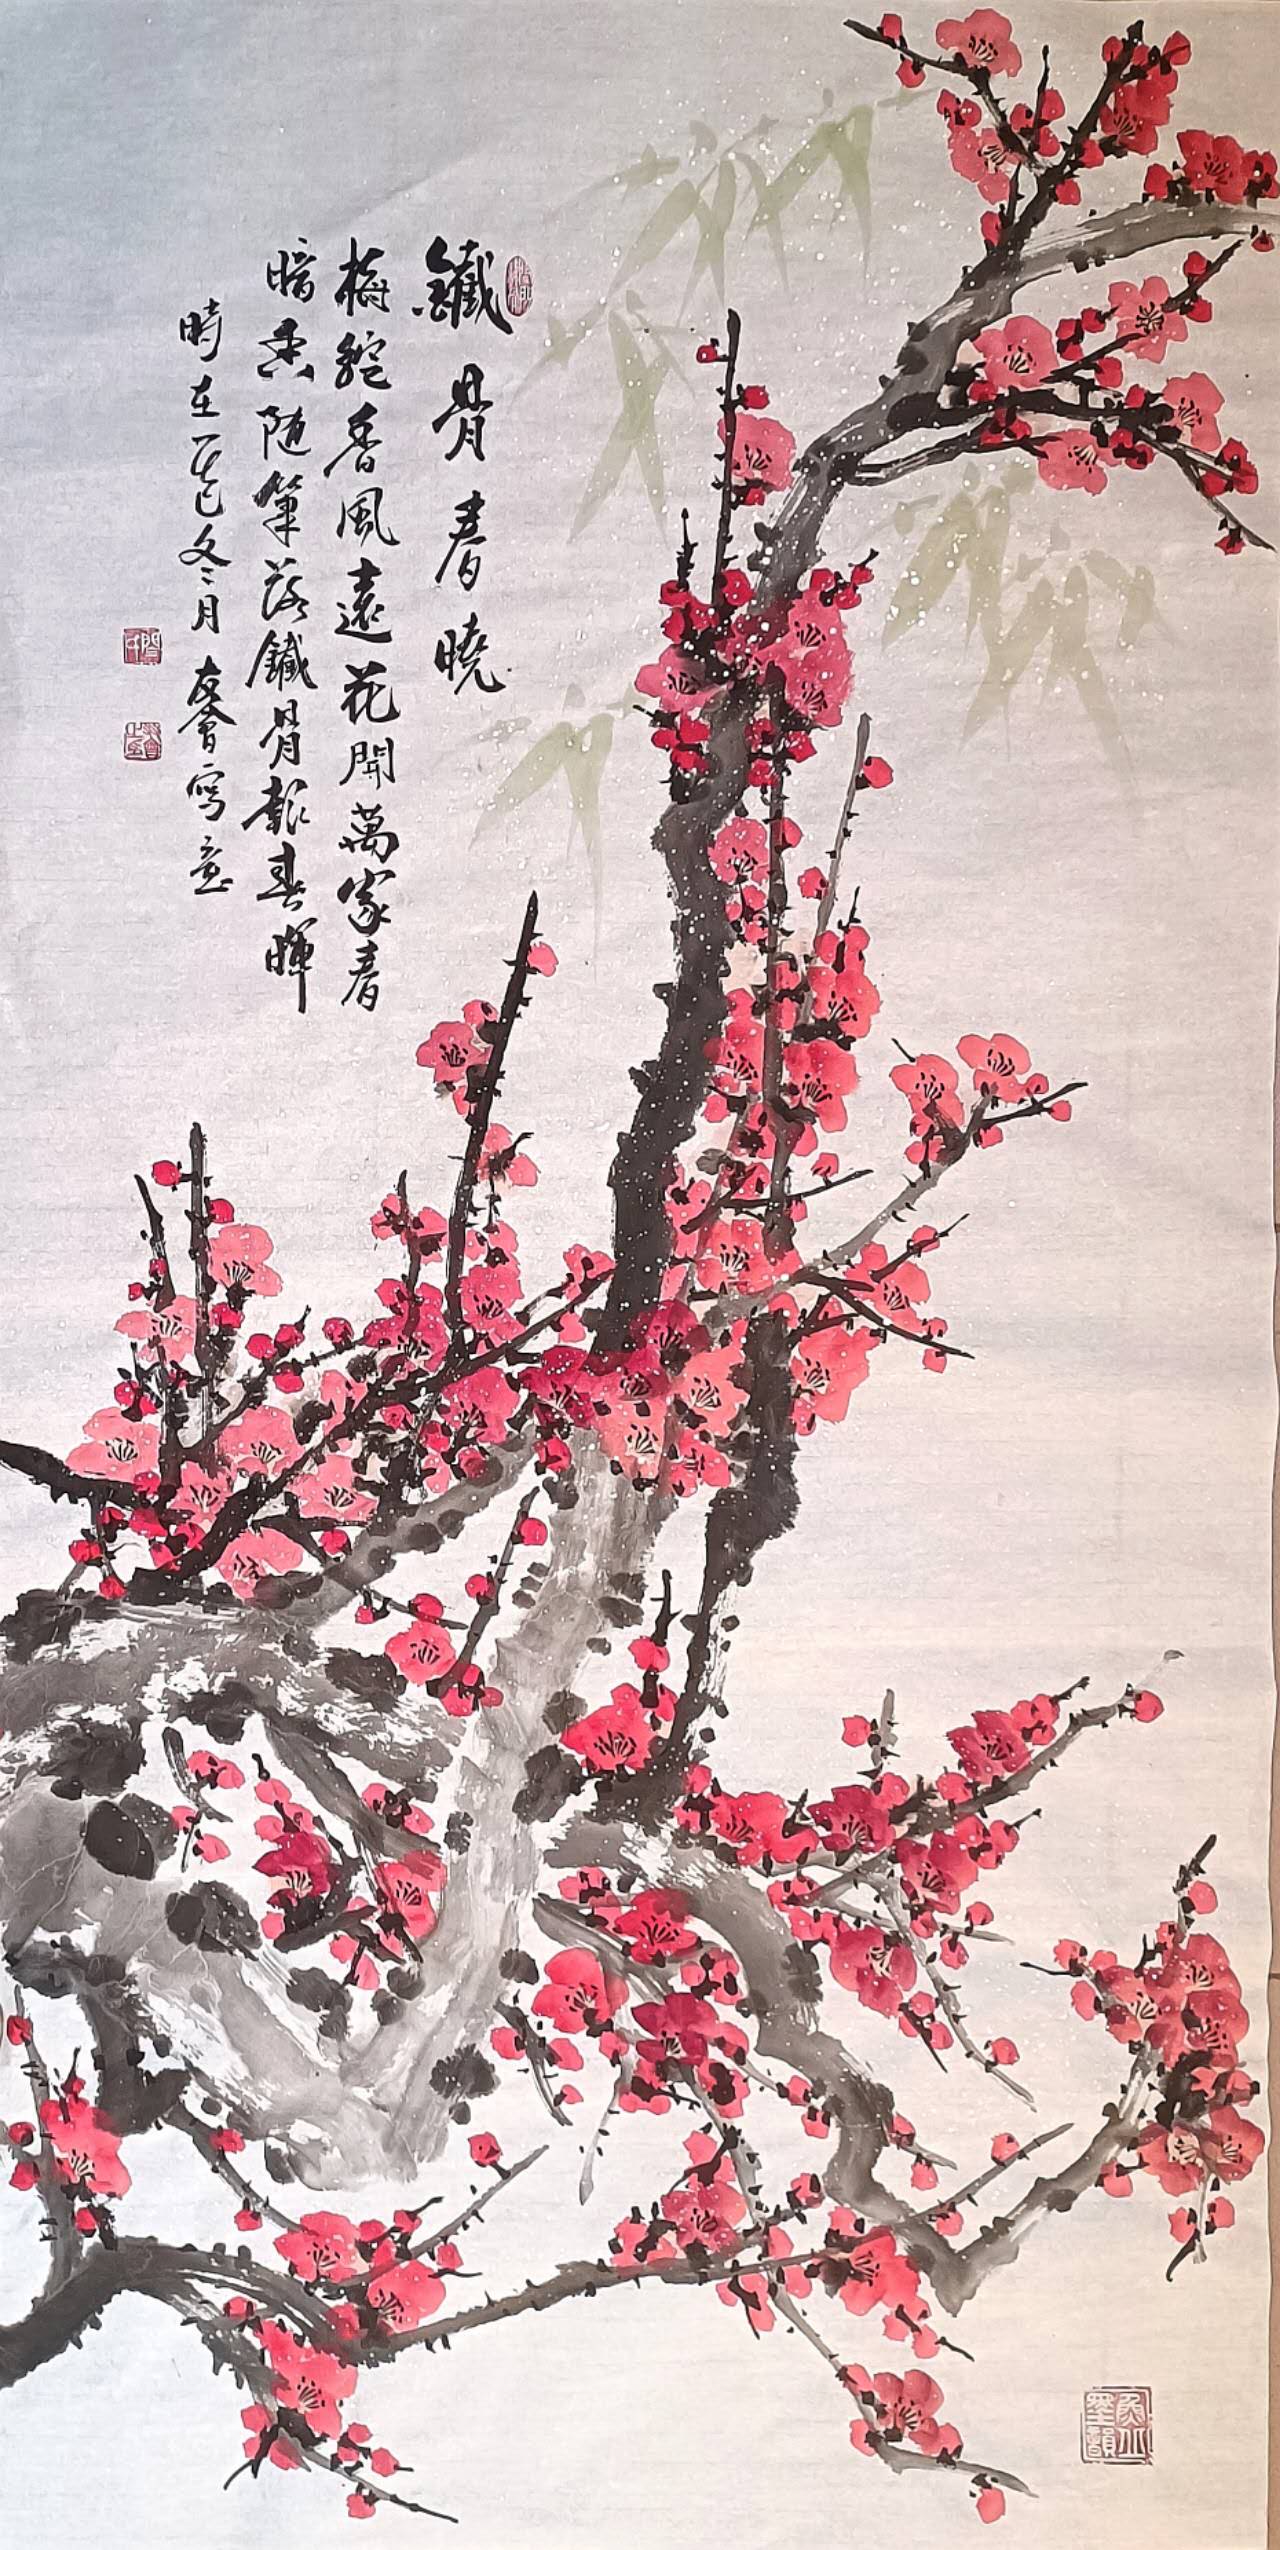 鐵骨春曉
梅綻香風遠花開萬家春
暗香随筆落鐵骨報春暉
時在乙巳冬月寫意
墨韻